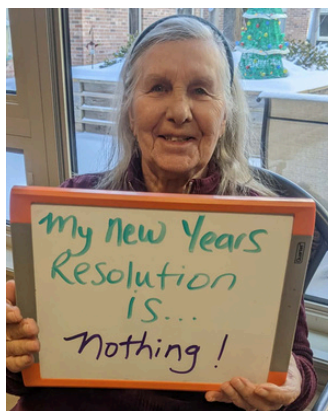 My New Years
Resolution
is...
Nothing!